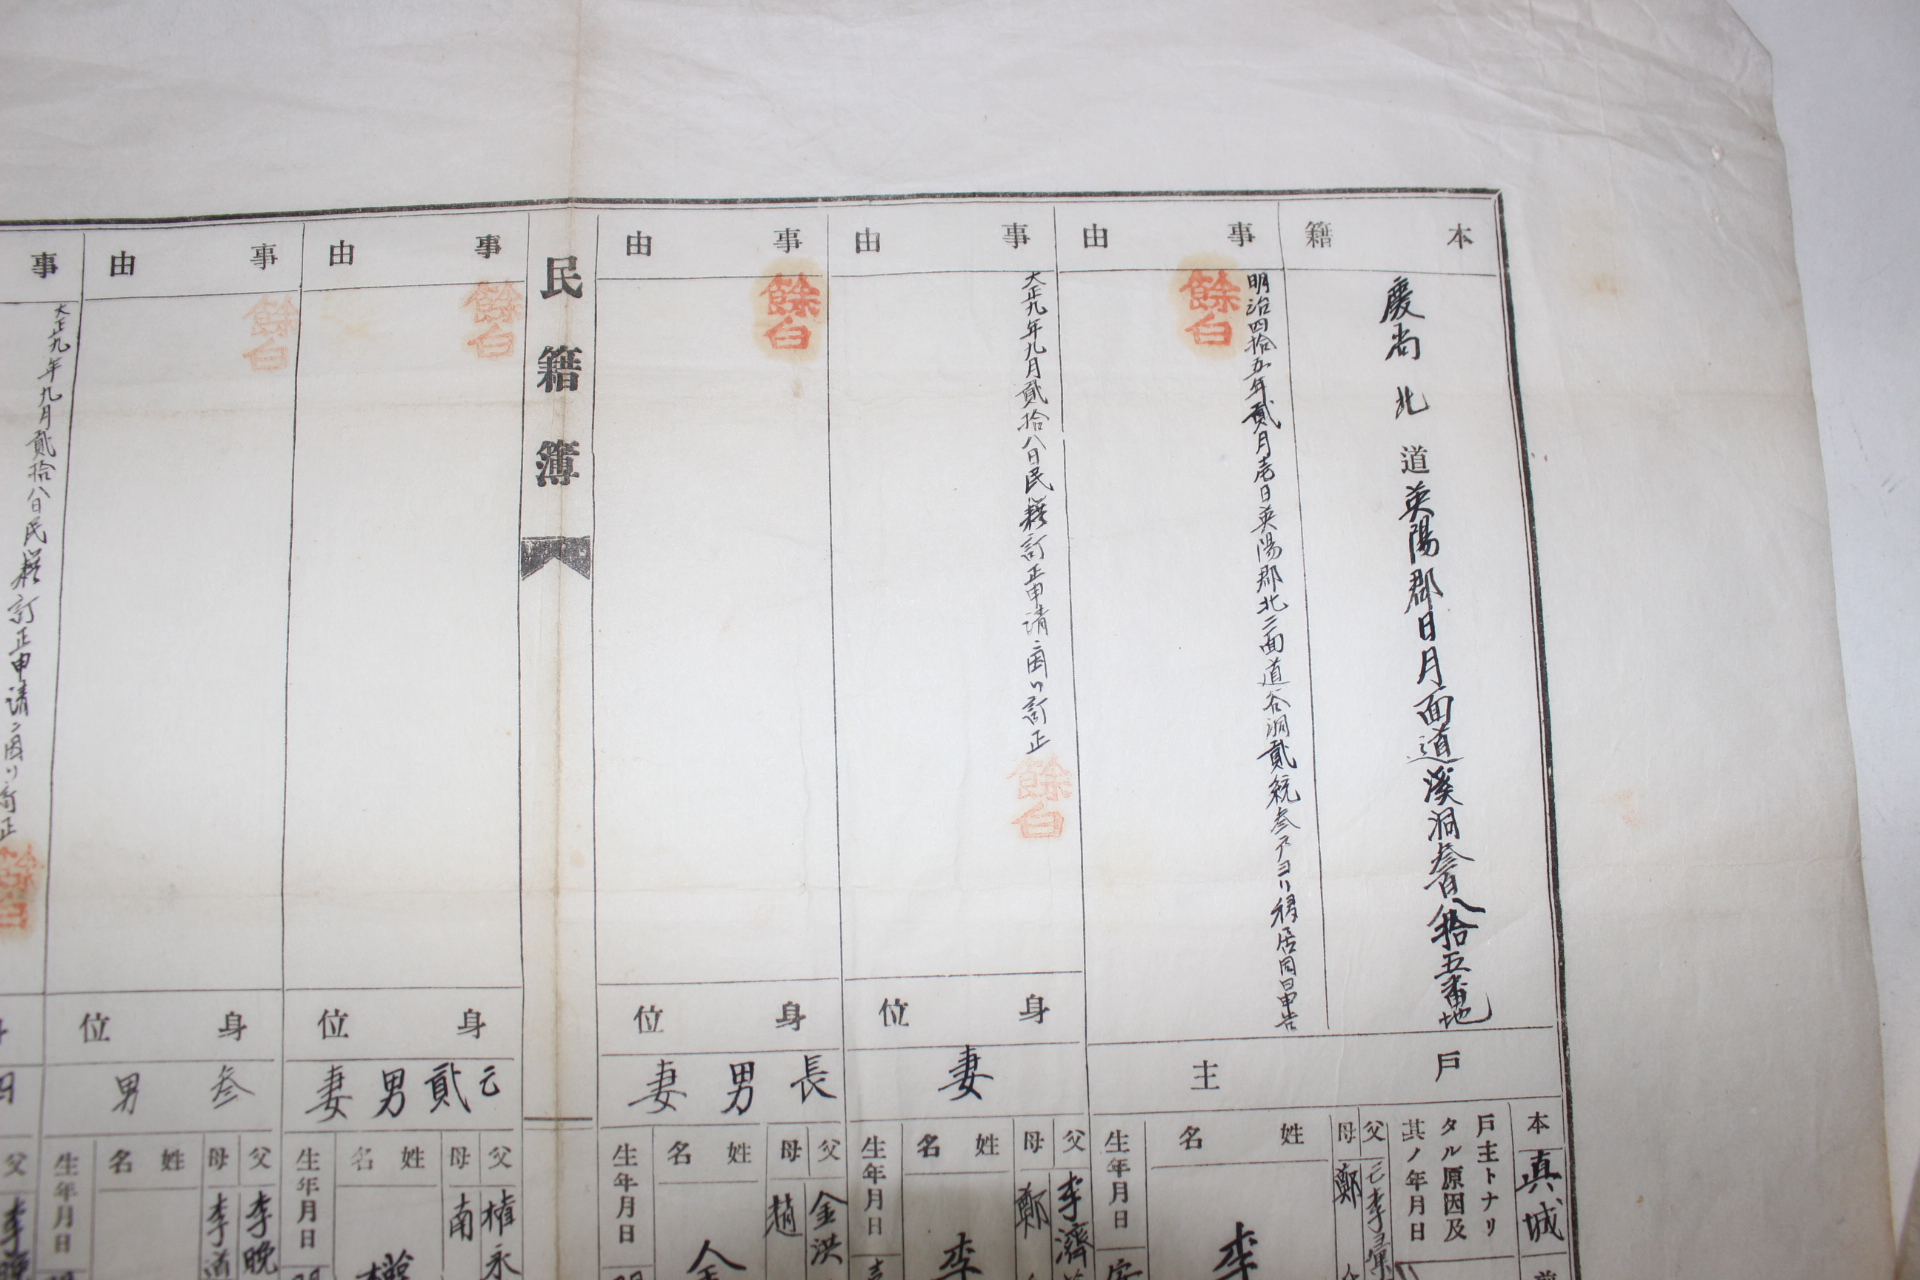 本籍
慶尚北道英陽郡日月面道溪洞叁百八拾五番地
事由
明治四拾五年貳月壱日英陽郡北二面道谷洞貳統叁戸ヨリ移居同日申告
餘白
戸主
本
真城
戸主トナリタル原因及其ノ年月日
父
母
鄭
姓名
李
生年月日
事由
大正九年九月貳拾八日民籍訂正申請ニ因リ訂正
餘白
身位
妻
父
李濟
母
鄭
姓名
李
生年月日
事由
餘白
身位
長男妻
父
金洪
母
趙
姓名
金
生年月日
民籍簿
事由
餘白
身位
貳男妻
父
権永
母
南
姓名
権
生年月日
事由
餘白
身位
叁男
父
李晩
母
李道
姓名
生年月日
事
大正九年九月貳拾八日民籍訂正申請ニ因リ訂正
餘白
父
李晩